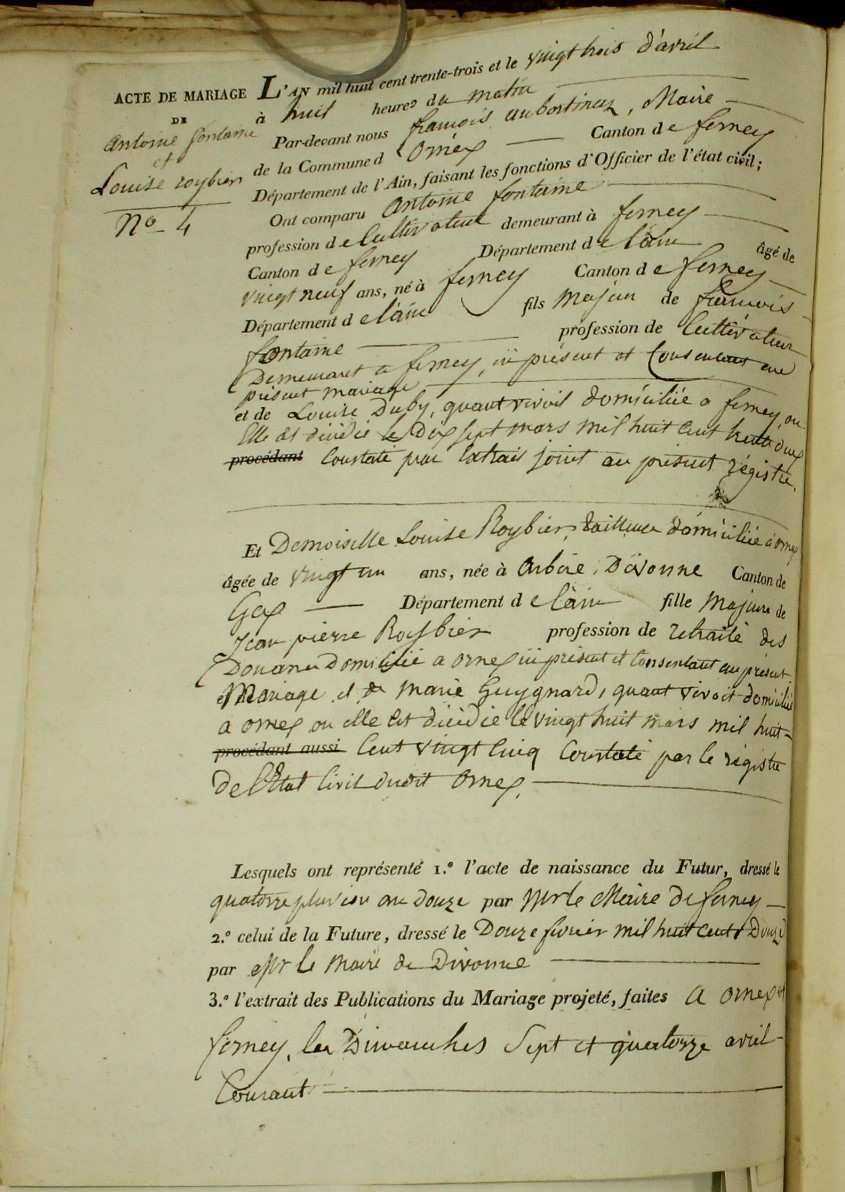 ACTE DE MARIAGE
DE
Antoine fontaine
et
Louise roybier
No. 4
L'AN mil huit cent trente-trois et le vingt trois d'avril
à huit heures du matin
Par-devant nous françois aubortinaz, Maire
de la Commune d Ornex Canton de ferney
Département de l'Ain, faisant les fonctions d'Officier de l'état civil;
Ont comparu Antoine fontaine
profession de Cultivateur demeurant à ferney
Canton de ferney Département de lain âgé de
vingt neuf ans, né à ferney Canton de ferney
Département de lain fils Majeur de françois
fontaine profession de Cultivateur
Demeurant a ferney, ici présent et Consentant au
présent mariage
et de Louise Duby, quant vivoit domiciliée a ferney, ou
Elle est dicidie le Dix sept mars mil huit cent trente deux
procédant Constaté par Extrait joint au présent régistre.
Et Demoiselle Louise Roybier, tailleuse domiciliée a ornex
âgée de vingt un ans, née à Arbere, Divonne Canton de
Gex Département de lain fille Majeure de
Jean pierre Roybier profession de retraité des
Douanes Domicilié a ornex ici présent et Consentant au présent
Mariage et de marie Guygnard, quant vivoit domicilié
a ornex ou elle est dicidie le vingt huit mars mil huit-
procédant aussi Cent vingt Cinq Constaté par le régistre
De l'Etat Civil dudit Ornex.
Lesquels ont représenté 1.º l'acte de naissance du Futur, dressé le
quatorze pluviose an douze par Mr le Maire de ferney
2.º celui de la Future, dressé le Douze fevrier mil huit cent Douze
par Mr le Maire de Divonne
3.º l'extrait des Publications du Mariage projeté, faites a ornex et
ferney, les Dimanches Sept et quatorze avril
Courant